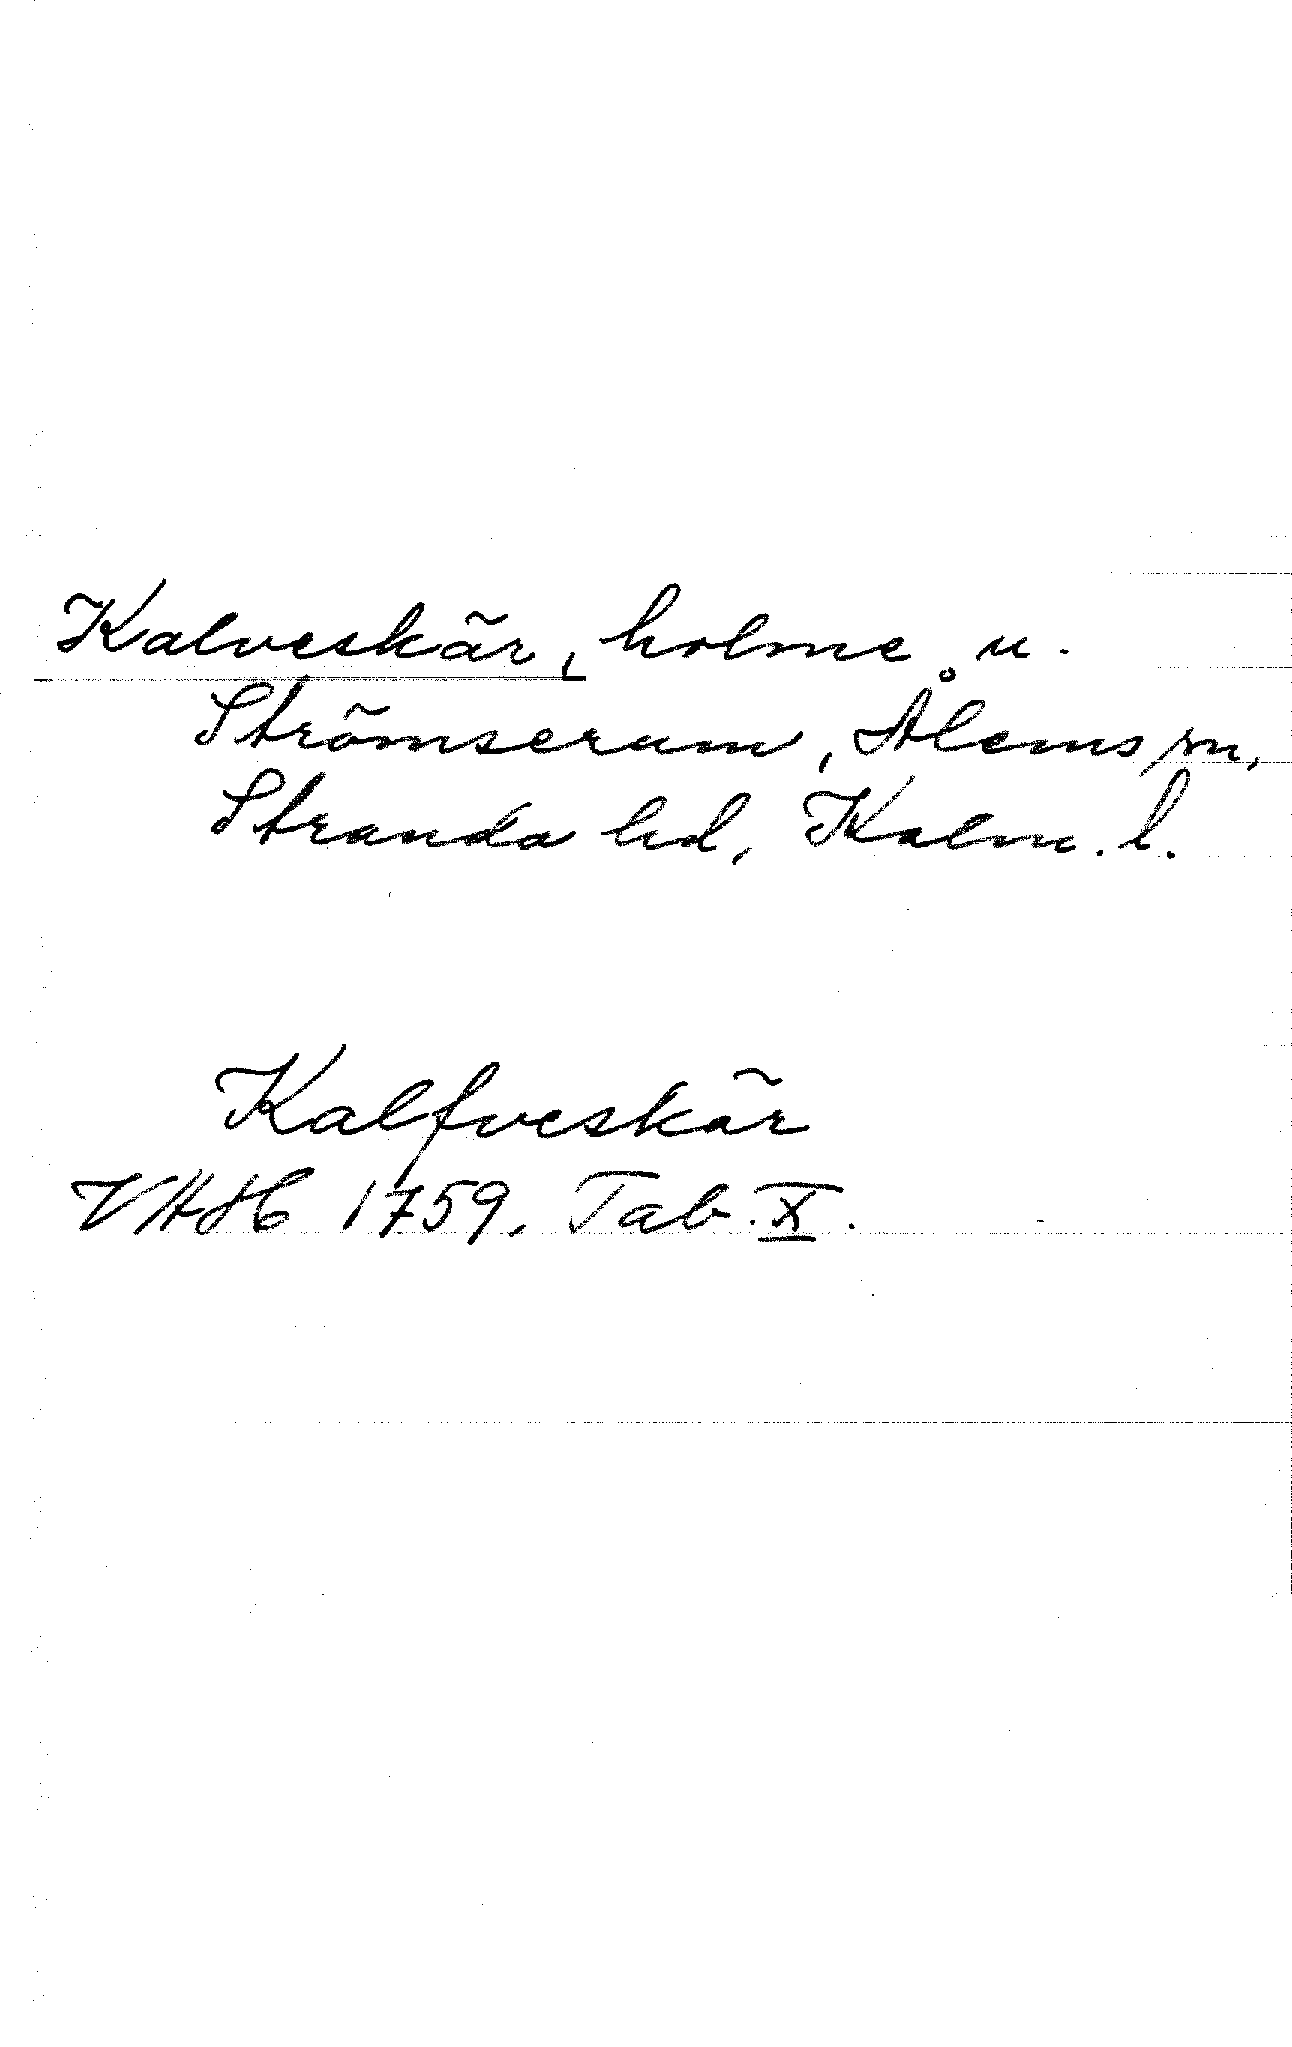 Kalveskär, holme u.
Strömserum, Ålems sn,
Stranda hd, Kalm. l.
Kalfveskär
VHAH 1759. Tab. X.